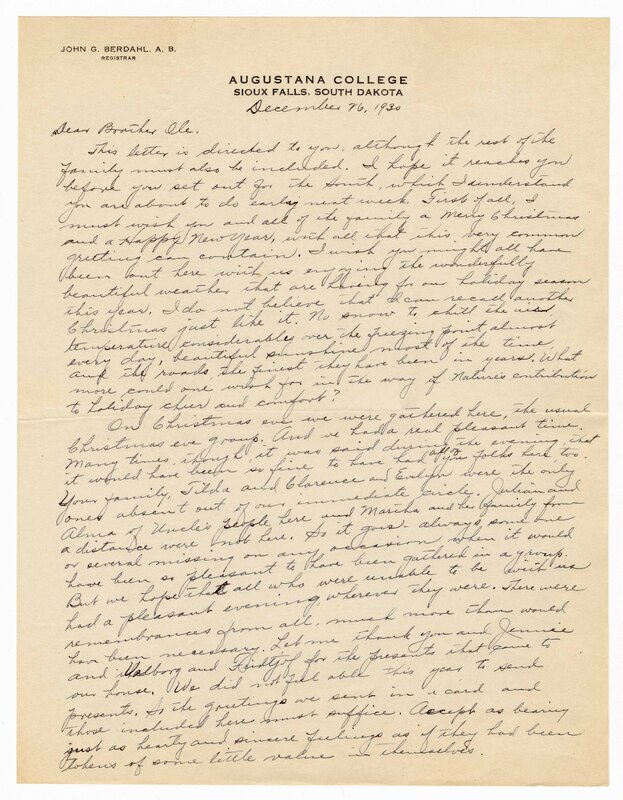 JOHN G. BERDAHL, A. B.
REGISTRAR
AUGUSTANA COLLEGE
SIOUX FALLS, SOUTH DAKOTA
December 26, 1930
Dear Brother Ole,
This letter is directed to you, although the rest of the
family must also be included. I hope it reaches you
before you set out for the South, which I understand
you are about to do early next week. First of all, I
must wish you and all of the family a Merry Christmas
and a Happy New Year, with all that this very common
greeting can contain. I wish you might all have
been out here with us enjoying the wonderfully
beautiful weather that are having for our holiday season
this year. I do not believe that I can recall another
Christmas just like it. No snow to chill the air
temperature considerably over the freezing point almost
every day, beautiful sunshine most of the time,
and the roads the finest they have been in years. What
more could one wish for in the way of Nature's contribution
to holiday cheer and comfort?
On Christmas eve we were gathered here, the usual
Christmas eve group. And we had a real pleasant time.
Many times, though, it was said during the evening, that
it would have been so fine to have had all of you folks here too.
Your family, Tilda and Clarence and Evelyn were the only
ones absent out of our immediate circle. Julian and
Alma of Uncle's people here and Martha and her family from
a distance were not here. So it goes always some one
or several missing on any occasion when it would
have been so pleasant to have been gathered in a group.
But we hope that all who were unable to be with us
had a pleasant evening, wherever they were. There were
remembrances from all, much more than would
have been necessary. Let me thank you and Jennie
and Valborg and Fridtjof for the presents that came to
our house. We did not feel able this year to send
presents. So the greetings we sent in a card and
those included here must suffice. Accept as being
just as hearty and sincere feelings as if they had been
tokens of some little value in themselves.